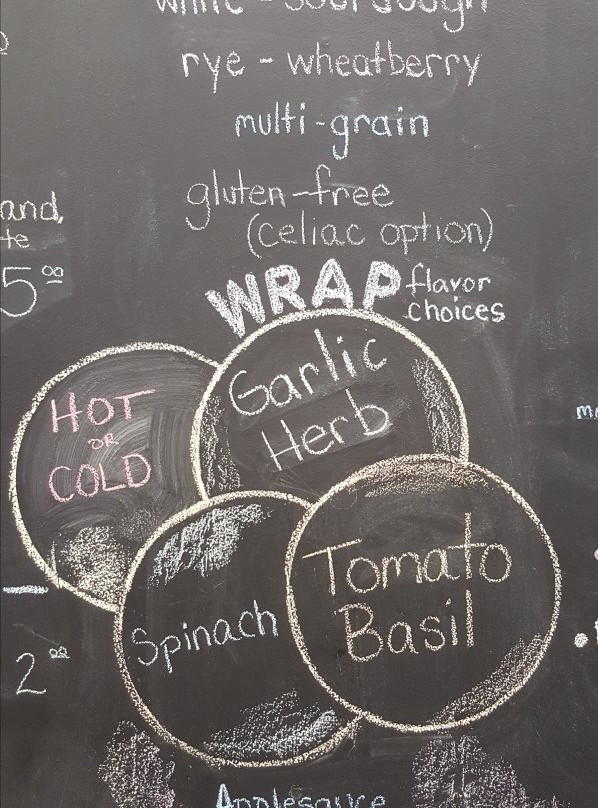 white - sourdough
rye - wheatberry
multi-grain
gluten-free
(celiac option)
and,
te
5⁰⁰
WRAP flavor
choices
Garlic
Herb
HOT
OR
COLD
Tomato
Basil
Spinach
2⁰⁰
Applesauce